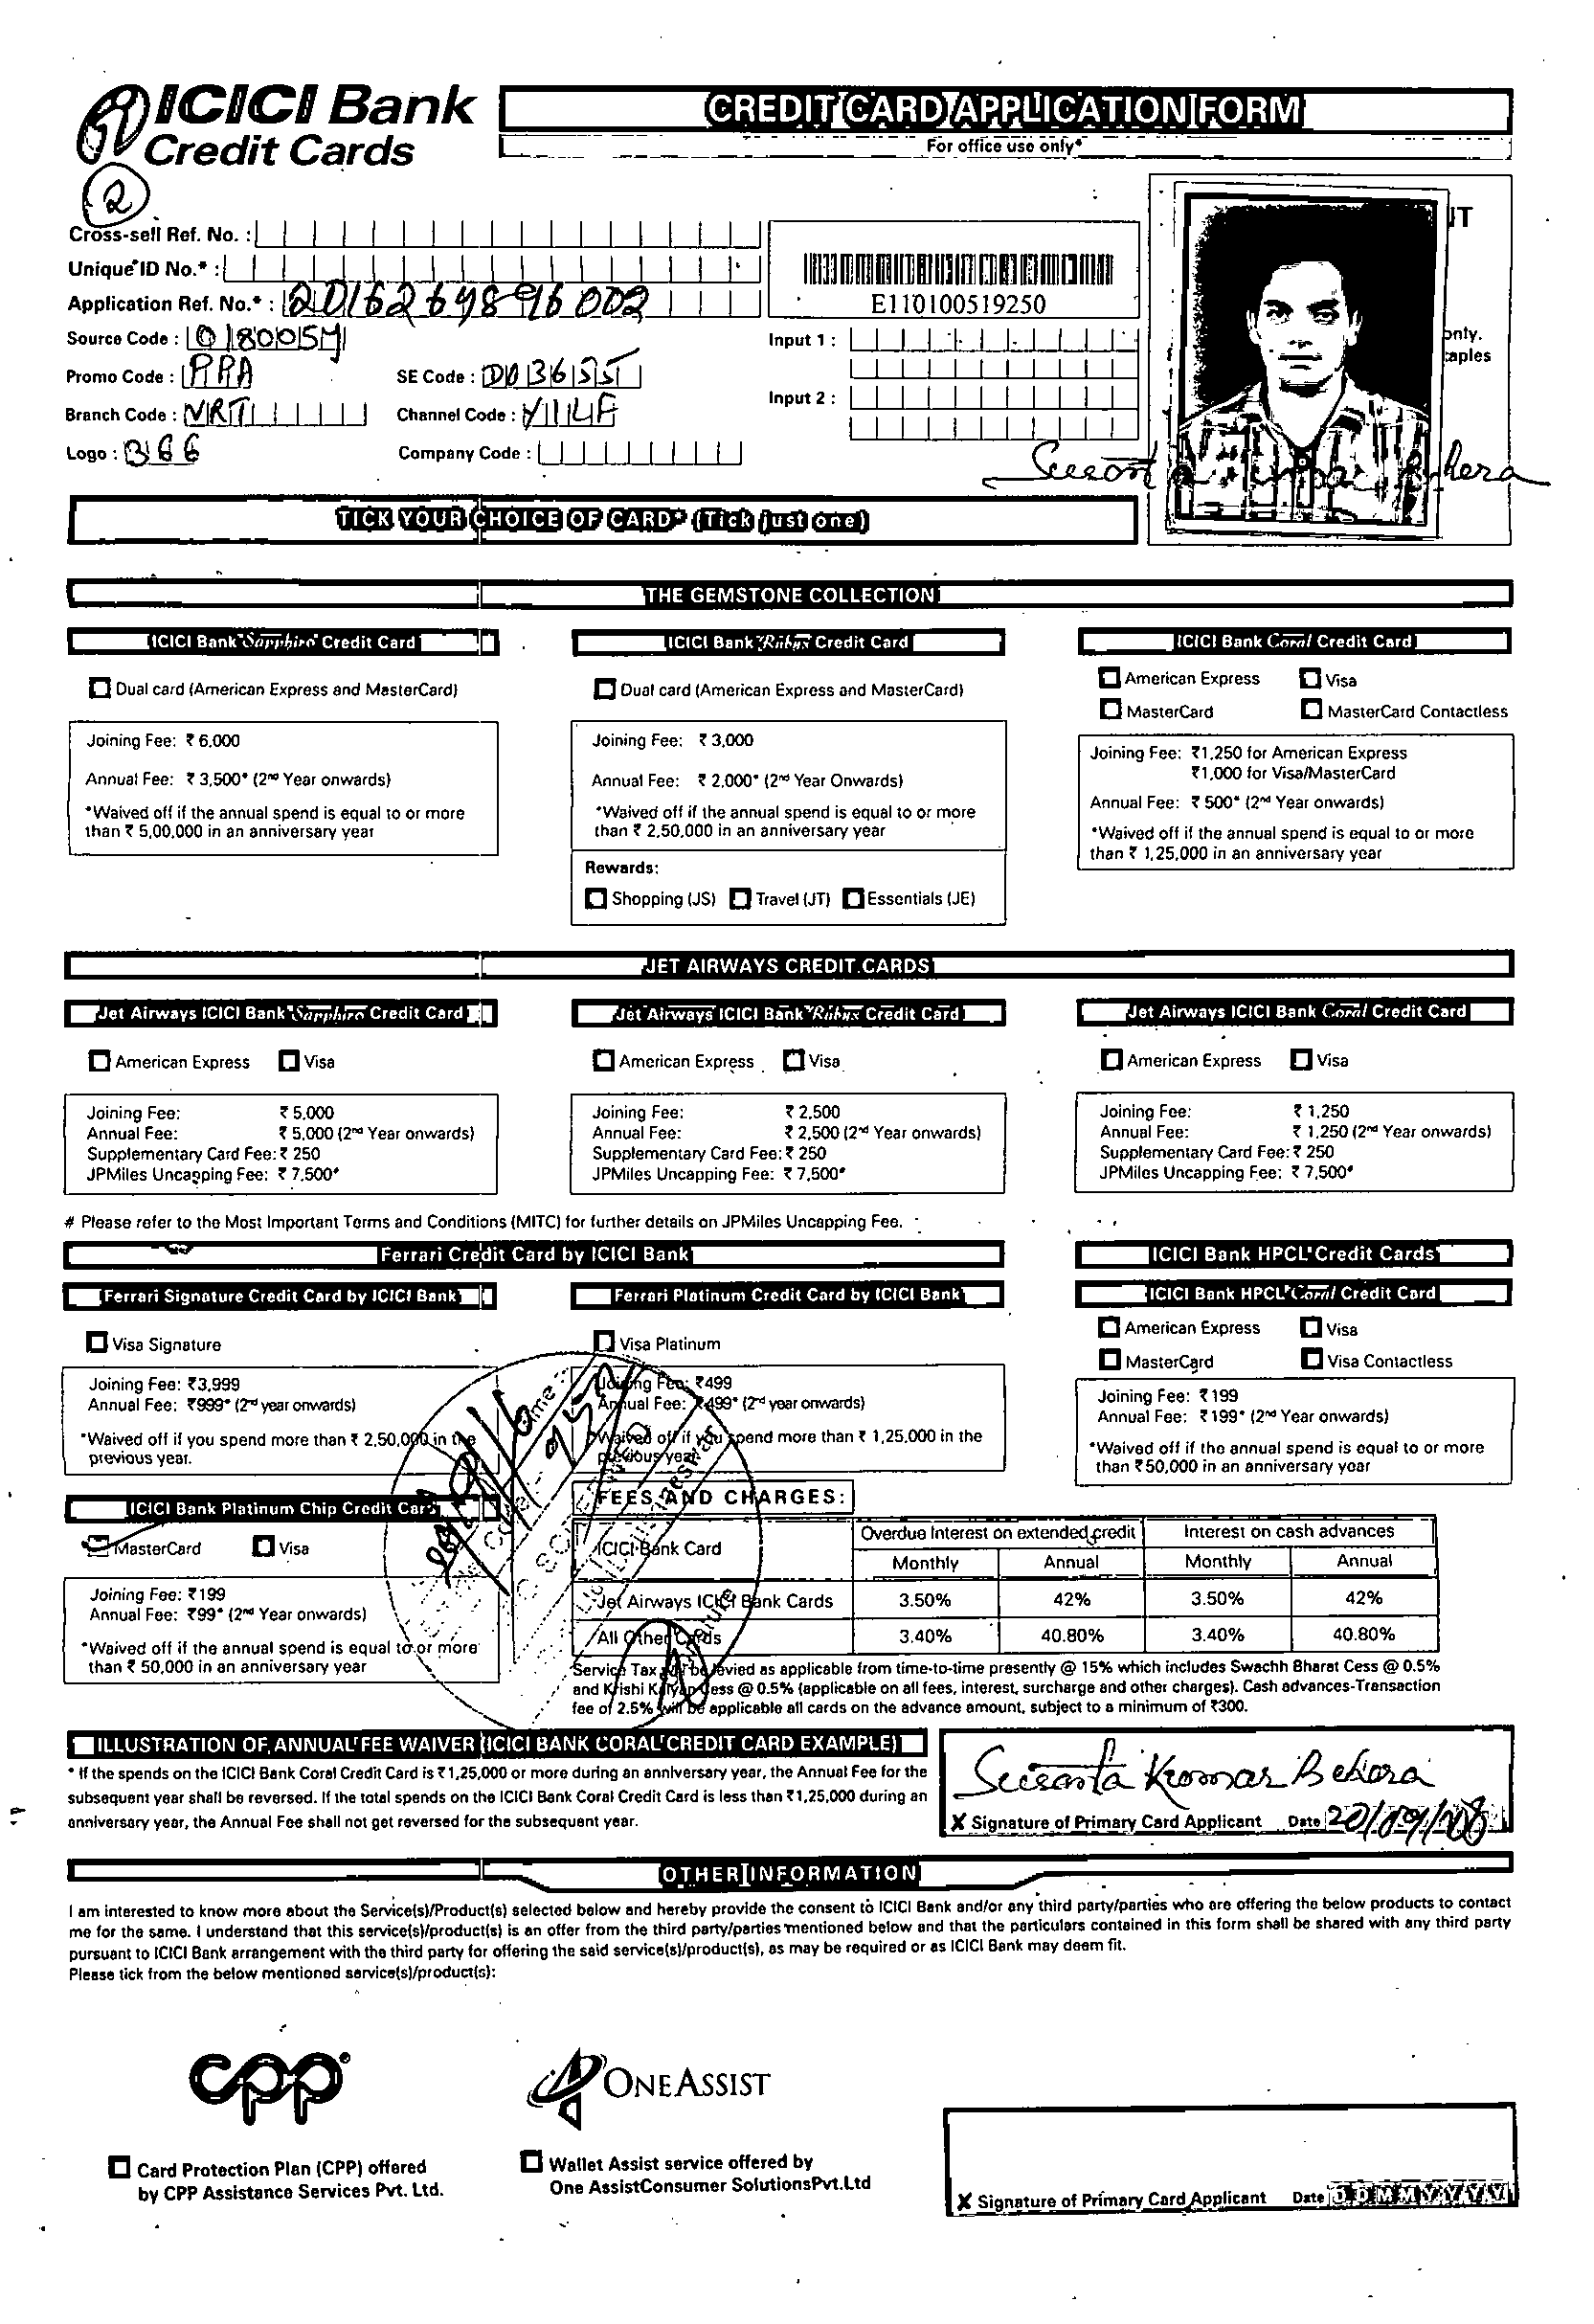 ICICI Bank
Credit Cards
CREDIT CARD APPLICATION FORM
For office use only*
2
Cross-sell Ref. No. :
Unique ID No.* :
Application Ref. No.* : 2016269896002
Source Code :
Promo Code : PPA
SE Code : D03655
Branch Code :
Channel Code :
Logo : 366
Company Code :
E110100519250
Input 1 :
Input 2 :
only.
TICK YOUR CHOICE OF CARD* (Tick just one)
THE GEMSTONE COLLECTION
ICICI Bank Sapphiro Credit Card
Dual card (American Express and MasterCard)
Joining Fee: ₹ 6,000
Annual Fee: ₹ 3,500* (2nd Year onwards)
*Waived off if the annual spend is equal to or more
than ₹ 5,00,000 in an anniversary year
ICICI Bank Rubyx Credit Card
Dual card (American Express and MasterCard)
Joining Fee: ₹ 3,000
Annual Fee: ₹ 2,000* (2nd Year Onwards)
*Waived off if the annual spend is equal to or more
than ₹ 2,50,000 in an anniversary year
Rewards:
Shopping (JS) Travel (JT) Essentials (JE)
ICICI Bank Coral Credit Card
American Express Visa
MasterCard MasterCard Contactless
Joining Fee: ₹1,250 for American Express
₹1,000 for Visa/MasterCard
Annual Fee: ₹ 500* (2nd Year onwards)
*Waived off if the annual spend is equal to or more
than ₹ 1,25,000 in an anniversary year
JET AIRWAYS CREDIT CARDS
Jet Airways ICICI Bank Sapphiro Credit Card
American Express Visa
Joining Fee: ₹ 5,000
Annual Fee: ₹ 5,000 (2nd Year onwards)
Supplementary Card Fee: ₹ 250
JPMiles Uncapping Fee: ₹ 7,500#
Jet Airways ICICI Bank Rubyx Credit Card
American Express Visa
Joining Fee: ₹ 2,500
Annual Fee: ₹ 2,500 (2nd Year onwards)
Supplementary Card Fee: ₹ 250
JPMiles Uncapping Fee: ₹ 7,500#
Jet Airways ICICI Bank Coral Credit Card
American Express Visa
Joining Fee: ₹ 1,250
Annual Fee: ₹ 1,250 (2nd Year onwards)
Supplementary Card Fee: ₹ 250
JPMiles Uncapping Fee: ₹ 7,500#
# Please refer to the Most Important Terms and Conditions (MITC) for further details on JPMiles Uncapping Fee.
Ferrari Credit Card by ICICI Bank
Ferrari Signature Credit Card by ICICI Bank
Visa Signature
Joining Fee: ₹3,999
Annual Fee: ₹999* (2nd year onwards)
*Waived off if you spend more than ₹ 2,50,000 in the
previous year.
Ferrari Platinum Credit Card by ICICI Bank
Visa Platinum
Joining Fee: ₹499
Annual Fee: ₹499* (2nd year onwards)
*Waived off if you spend more than ₹ 1,25,000 in the
previous year.
ICICI Bank HPCL Credit Cards
ICICI Bank HPCL Coral Credit Card
American Express Visa
MasterCard Visa Contactless
Joining Fee: ₹199
Annual Fee: ₹199* (2nd Year onwards)
*Waived off if the annual spend is equal to or more
than ₹50,000 in an anniversary year
ICICI Bank Platinum Chip Credit Card
MasterCard Visa
Joining Fee: ₹199
Annual Fee: ₹99* (2nd Year onwards)
*Waived off if the annual spend is equal to or more
than ₹ 50,000 in an anniversary year
FEES AND CHARGES:
ICICI Bank Card Overdue Interest on extended credit Interest on cash advances
Monthly Annual Monthly Annual
Jet Airways ICICI Bank Cards 3.50% 42% 3.50% 42%
All Other Cards 3.40% 40.80% 3.40% 40.80%
Service Tax will be levied as applicable from time-to-time presently @ 15% which includes Swachh Bharat Cess @ 0.5%
and Krishi Kalyan Cess @ 0.5% (applicable on all fees, interest, surcharge and other charges). Cash advances-Transaction
fee of 2.5% will be applicable all cards on the advance amount, subject to a minimum of ₹300.
ILLUSTRATION OF ANNUAL FEE WAIVER (ICICI BANK CORAL CREDIT CARD EXAMPLE)
* If the spends on the ICICI Bank Coral Credit Card is ₹1,25,000 or more during an anniversary year, the Annual Fee for the
subsequent year shall be reversed. If the total spends on the ICICI Bank Coral Credit Card is less than ₹1,25,000 during an
anniversary year, the Annual Fee shall not get reversed for the subsequent year.
Susanta Kumar Behera
X Signature of Primary Card Applicant Date
OTHER INFORMATION
I am interested to know more about the Service(s)/Product(s) selected below and hereby provide the consent to ICICI Bank and/or any third party/parties who are offering the below products to contact
me for the same. I understand that this service(s)/product(s) is an offer from the third party/parties mentioned below and that the particulars contained in this form shall be shared with any third party
pursuant to ICICI Bank arrangement with the third party for offering the said service(s)/product(s), as may be required or as ICICI Bank may deem fit.
Please tick from the below mentioned service(s)/product(s):
cpp
Card Protection Plan (CPP) offered
by CPP Assistance Services Pvt. Ltd.
ONEASSIST
Wallet Assist service offered by
One AssistConsumer SolutionsPvt.Ltd
X Signature of Primary Card Applicant Date D D M M Y Y Y Y